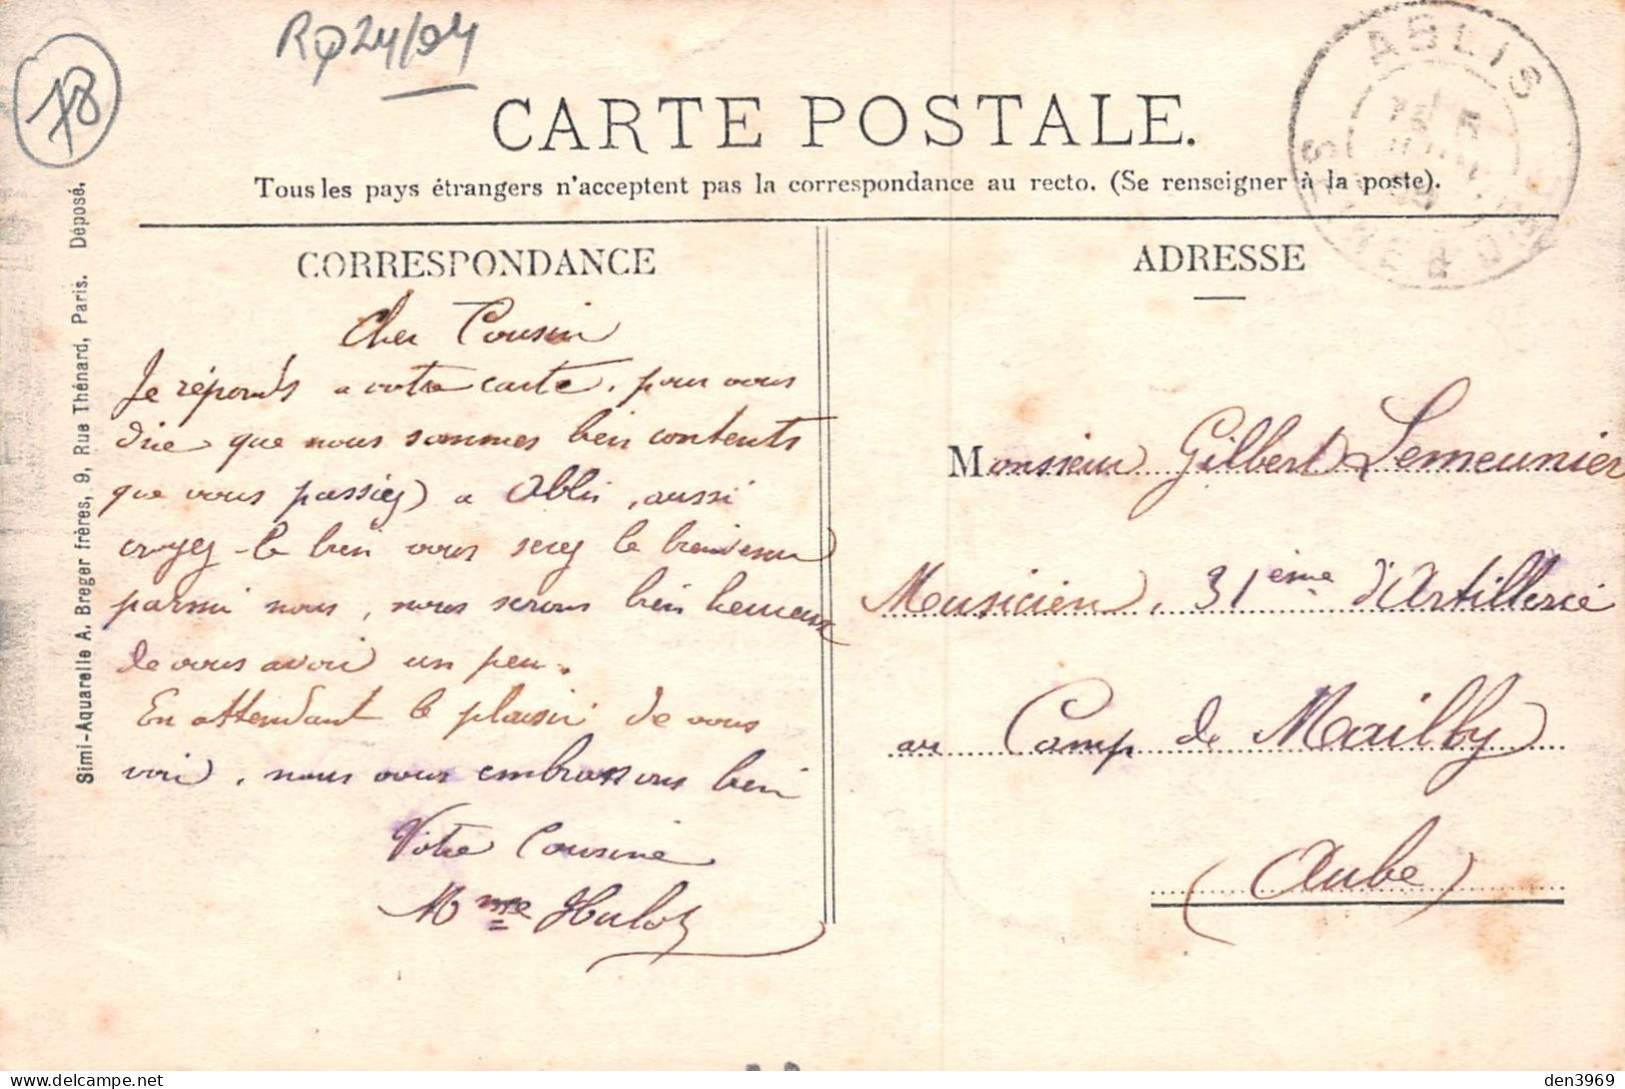 78
CARTE POSTALE.
Tous les pays étrangers n'acceptent pas la correspondance au recto. (Se renseigner à la poste).
ABLIS
SEINE & OISE
Simi-Aquarelle A. Breger frères, 9, Rue Thénard, Paris. Déposé.
CORRESPONDANCE
Cher Cousin
Je réponds a votre carte, pour vous
dire que nous sommes bien contents
que vous passiez a Ablis, aussi
croyez-le bien vous serez le bienvenu
parmi nous, nous serons bien heureux
de vous avoir un peu.
En attendant le plaisir de vous
voir, nous vous embrassons bien
Votre Cousine
Mme Hulot
ADRESSE
Monsieur Gilbert Lemeunier
Musicien, 31ème d'Artillerie
au Camp de Mailly
(Aube)
den3969